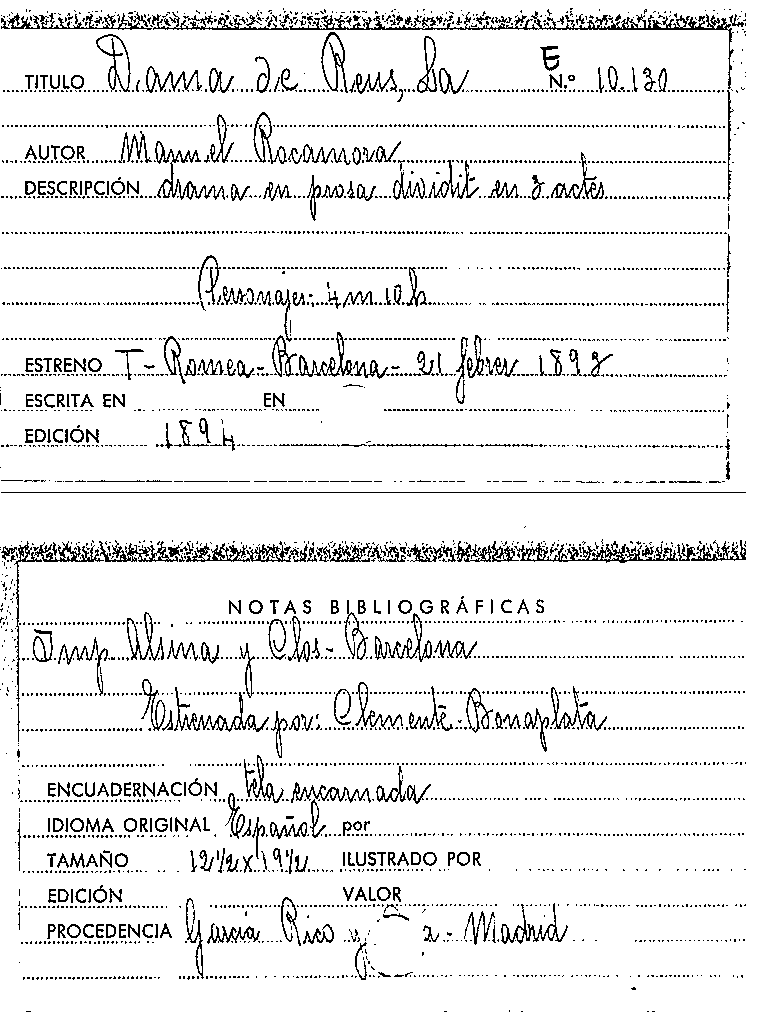 E
TITULO Dama de Reus, La N.º 10.130
AUTOR Manuel Rocamora
DESCRIPCIÓN drama en prosa dividit en 3 actes
Personajes: 4 m 10 h
ESTRENO T - Romea - Barcelona - 21 febrer 1893
ESCRITA EN EN
EDICIÓN 1894
NOTAS BIBLIOGRÁFICAS
Imp Alsina y Clos - Barcelona
Estrenada por: Clemente - Bonaplata
ENCUADERNACIÓN tela encarnada
IDIOMA ORIGINAL Español por
TAMAÑO 12 1/2 x 19 1/2 ILUSTRADO POR
EDICIÓN VALOR
PROCEDENCIA García Rico y - Madrid